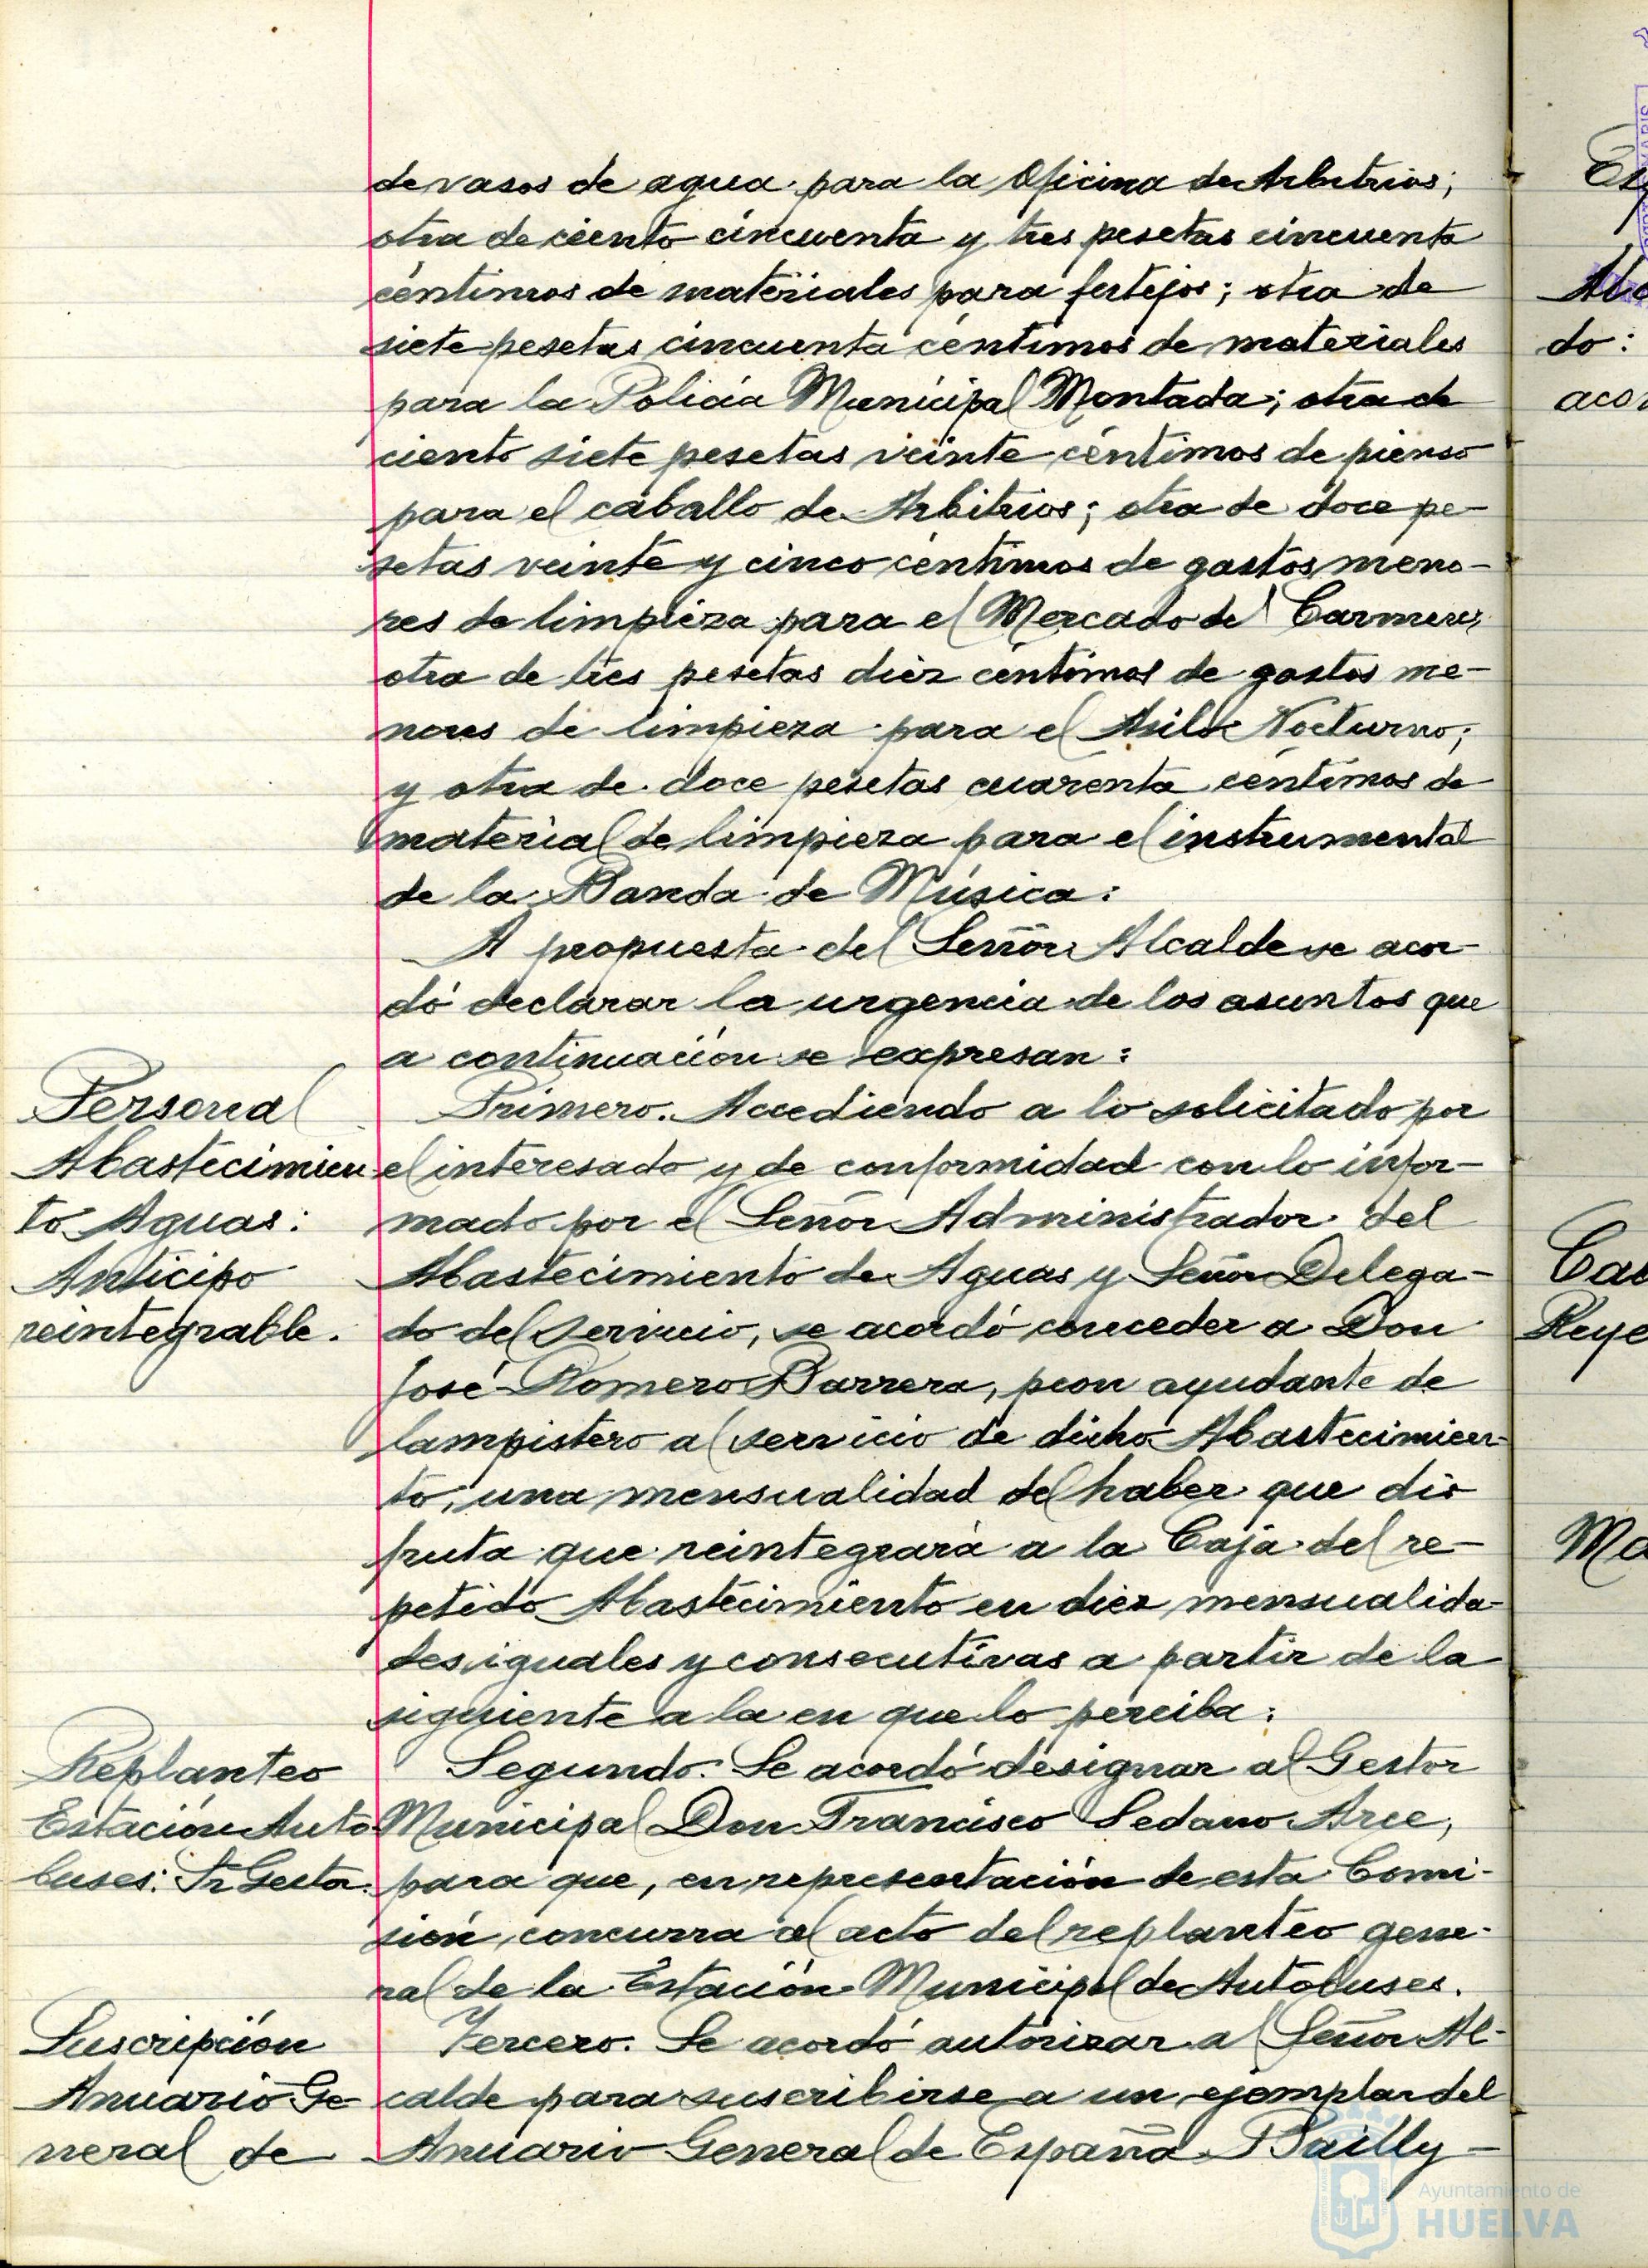 de vasos de agua para la Oficina de Arbitrios;
otra de ciento cincuenta y tres pesetas cincuenta
céntimos de materiales para festejos; otra de
siete pesetas cincuenta céntimos de materiales
para la Policía Municipal Montada; otra de
ciento siete pesetas veinte céntimos de pienso
para el caballo de Arbitrios; otra de doce pe-
setas veinte y cinco céntimos de gastos meno-
res de limpieza para el Mercado del Carmen;
otra de tres pesetas diez céntimos de gastos me-
nores de limpieza para el Asilo Nocturno;
y otra de doce pesetas cuarenta céntimos de
material de limpieza para el instrumental
de la Banda de Música:
A propuesta del Señor Alcalde se acor-
dó declarar la urgencia de los asuntos que
a continuación se expresan:
Personal
Abastecimien
to Aguas:
Anticipo
reintegrable.
Primero. Accediendo a lo solicitado por
el interesado y de conformidad con lo infor-
mado por el Señor Administrador del
Abastecimiento de Aguas y Señor Delega-
do del Servicio, se acordó conceder a Don
José Romero Barrera, peon ayudante de
lampistero al servicio de dicho Abastecimien-
to, una mensualidad del haber que dis
fruta que reintegrará a la Caja del re-
petido Abastecimiento en diez mensualida-
des iguales y consecutivas a partir de la
siguiente a la en que lo perciba:
Replanteo
Estación Auto
buses: Sr Gestor.
Segundo. Se acordó designar al Gestor
Municipal Don Francisco Sedano Arce,
para que, en representación de esta Comi-
sión, concurra al acto del replanteo gene-
ral de la Estación Municipal de Autobuses.
Suscripción
Anuario Ge-
neral de
Tercero. Se acordó autorizar al Señor Al-
calde para suscribirse a un ejemplar del
Anuario General de España Bailly-
do:
Ayuntamiento de
HUELVA